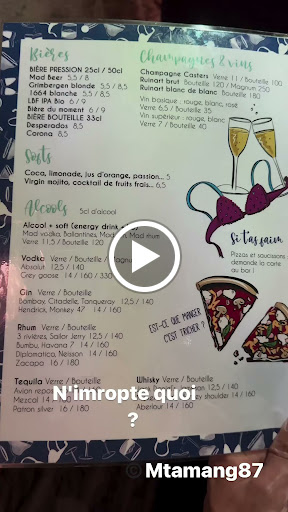 Bières
BIÈRE PRESSION 25cl / 50cl
Mad Beer 5,5 / 8
Grimbergen blonde 5,5 / 8
1664 blanche 5,5 / 8,5
LBF IPA Bio 6 / 9
Bière du moment 6 / 9
BIÈRE BOUTEILLE 33cl
Desperados 8,5
Corona 8,5
Softs
Coca, limonade, jus d'orange, passion... 5
Virgin mojito, cocktail de fruits frais... 6,5
Alcools 5cl d'alcool
Alcool + soft (energy drink +
Mad vodka, Ballantines, Mad rhum
Verre 11,5 / Bouteille 120
Vodka Verre / Bouteille / Magnum
Absolut 12,5 /
Grey goose 14 / 160 / 330
Gin Verre / Bouteille
Bombay, Citadelle, Tanqueray 12,5 /
Hendrick, Monkey 47 14 /
Rhum Verre / Bouteille
3 rivières, Sailor Jerry 12,5 / 140
Bumbu, Havana 7 14 / 160
Diplomatico, Neisson 14 / 160
Zacapa 16 / 180
Tequila Verre / Bouteille
Avion repo
Mezcal 14
Patron silver 16 / 180
Champagnes & vins
Champagne Casters Verre 11 / Bouteille 100
Ruinart brut Bouteille 120 / Magnum 250
Ruinart blanc de blanc Bouteille 180
Vin basique : rouge, blanc, rosé
Verre 6,5 / Bouteille 35
Vin supérieur : rouge, blanc
Verre 7 / Bouteille 40
Si t'as faim
Pizzas et saucissons
demande la carte
au bar !
EST-CE QUE MANGER
C'EST TRICHER ?
Whisky Verre / Bouteille
12,5 / 140
shoulder 14 / 160
Aberlour 14 / 160
N'imropte quoi
?
© Mtamang87